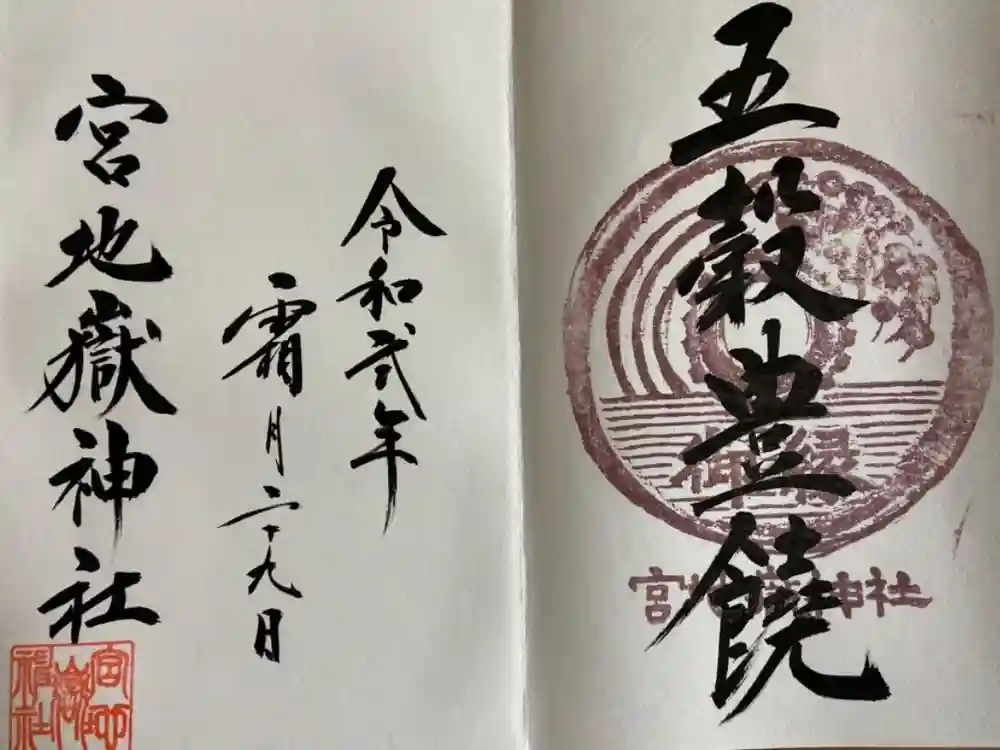 五穀豊饒
御縁
宮地嶽神社
令和弐年
霜月二十九日
宮地嶽神社